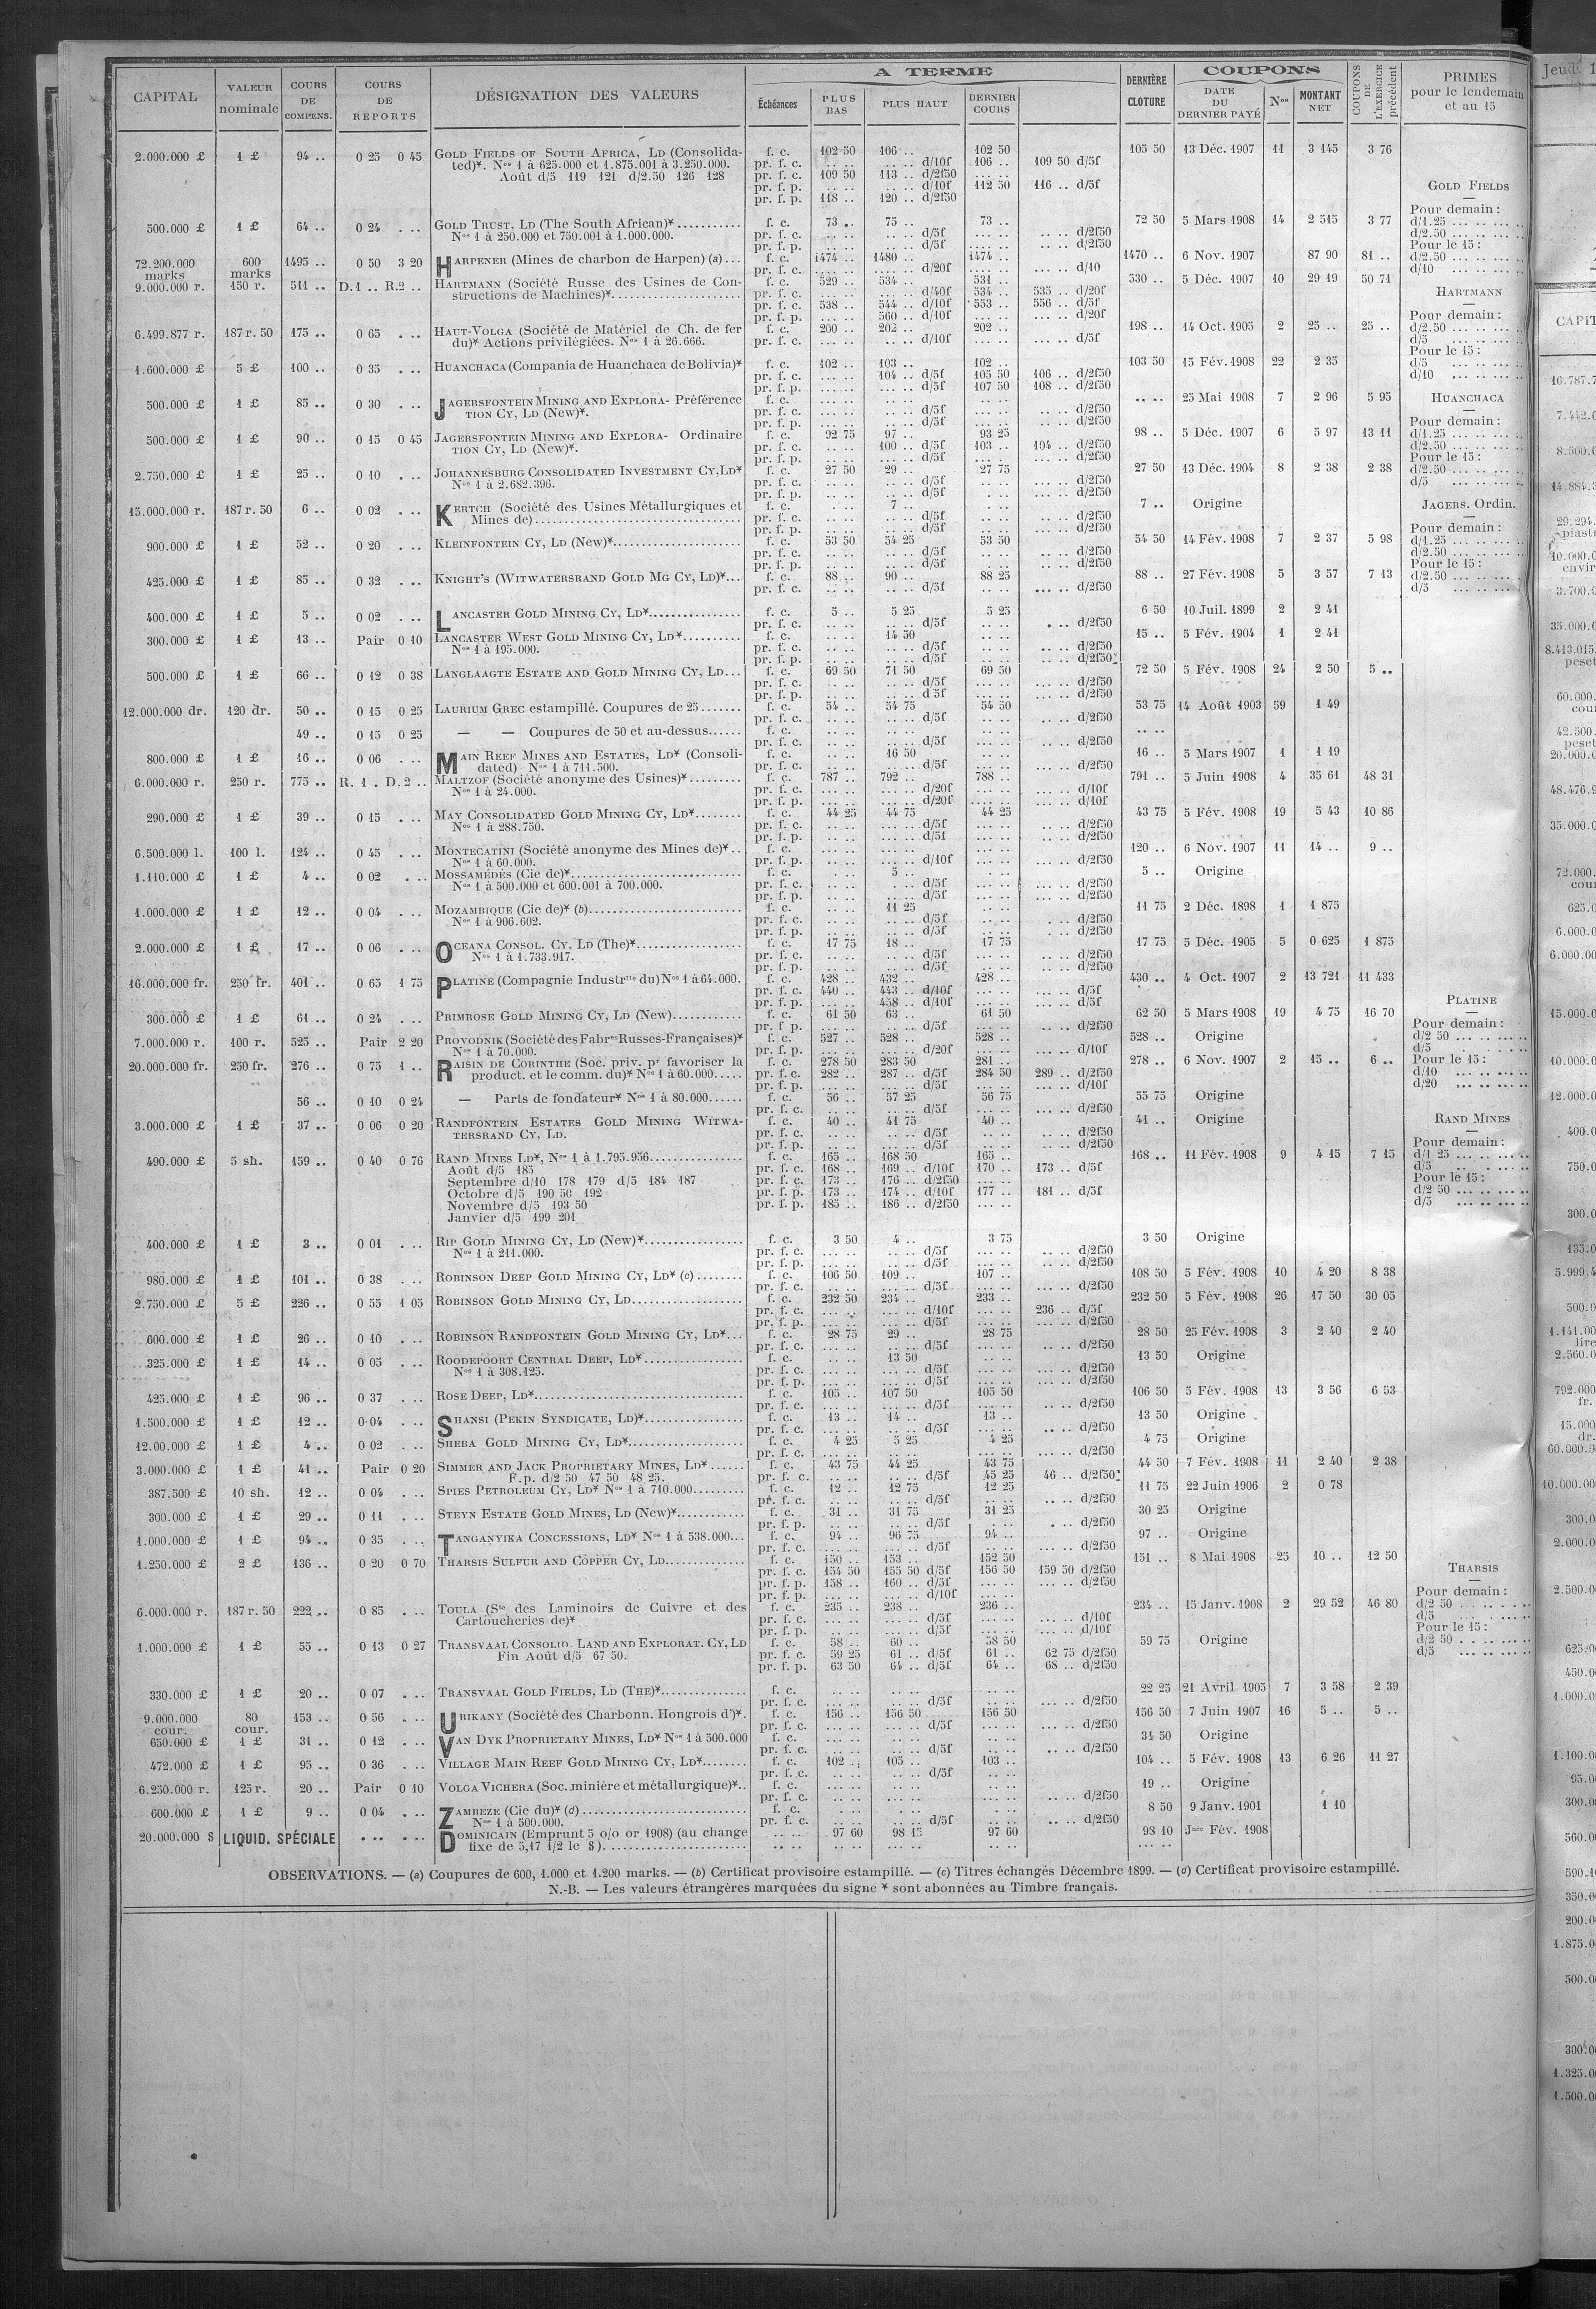 CAPITAL VALEUR nominale COURS DE COMPENS. COURS DE REPORTS DÉSIGNATION DES VALEURS A TERME Échéances PLUS BAS PLUS HAUT DERNIER COURS DERNIÈRE CLOTURE COUPONS DATE DU DERNIER PAYÉ Nos MONTANT NET COUPONS DE L'EXERCICE précédent PRIMES pour le lendemain et au 15
2.000.000 £ 1 £ 94 .. 0 25 0 45 GOLD FIELDS OF SOUTH AFRICA, LD (Consolida- f. c. 102 50 106 .. 102 50 105 50 13 Déc. 1907 11 3 145 3 76
ted)*. Nos 1 à 625.000 et 1.875.001 à 3.250.000. pr. f. c. .. .. .. .. d/10f 106 .. 109 50 d/5f
Août d/5 119 121 d/2.50 126 128 pr. f. c. 109 50 113 .. d/2f50 ... ..
pr. f. p. .. .. .. .. d/10f 112 50 116 .. d/5f
pr. f. p. 118 .. 120 .. d/2f50
500.000 £ 1 £ 64 .. 0 24 . .. GOLD TRUST, LD (The South African)* f. c. 73 .. 75 .. 73 .. 72 50 5 Mars 1908 14 2 515 3 77
Nos 1 à 250.000 et 750.001 à 1.000.000. pr. f. c. .. .. .. .. d/5f .. .. d/2f50
pr. f. p. .. .. .. .. d/5f .. .. d/2f50
72.200.000 marks 600 marks 1495 .. 0 50 3 20 HARPENER (Mines de charbon de Harpen) (a) f. c. 1474 .. 1480 .. 1474 .. 1470 .. 6 Nov. 1907 87 90 81 ..
pr. f. c. .... .. .... .. d/20f ... .. d/10
9.000.000 r. 150 r. 511 .. D.1 .. R.2 .. HARTMANN (Société Russe des Usines de Con- f. c. 529 .. 534 .. 531 .. 530 .. 5 Déc. 1907 10 29 19 50 71
structions de Machines)* pr. f. c. ... .. ... .. d/40f 534 .. 535 .. d/20f
pr. f. c. 538 .. 544 .. d/10f 553 .. 556 .. d/5f
pr. f. p. ... .. 560 .. d/10f ... .. d/20f
6.499.877 r. 187 r. 50 175 .. 0 65 . .. HAUT-VOLGA (Société de Matériel de Ch. de fer f. c. 200 .. 202 .. 202 .. 198 .. 14 Oct. 1905 2 25 .. 25 ..
du)* Actions privilégiées. Nos 1 à 26.666. pr. f. c. ... .. .. .. d/10f ... .. d/5f
1.600.000 £ 5 £ 100 .. 0 35 . .. HUANCHACA (Compania de Huanchaca de Bolivia)* f. c. 102 .. 103 .. 102 .. 103 50 15 Fév. 1908 22 2 35
pr. f. c. ... .. 104 .. d/5f 105 50 106 .. d/2f50
pr. f. p. ... .. ... .. d/5f 107 50 108 .. d/2f50
500.000 £ 1 £ 85 .. 0 30 . .. JAGERSFONTEIN MINING AND EXPLORA- Préférence f. c. .. .. .. .. .. .. 25 Mai 1908 7 2 96 5 95
TION CY, LD (New)*. pr. f. c. .. .. .. .. d/5f .. .. d/2f50
pr. f. p. .. .. .. .. d/5f .. .. d/2f50
500.000 £ 1 £ 90 .. 0 15 0 45 JAGERSFONTEIN MINING AND EXPLORA- Ordinaire f. c. 92 75 97 .. 93 25 98 .. 5 Déc. 1907 6 5 97 13 11
TION CY, LD (New)*. pr. f. c. .. .. 100 .. d/5f 103 .. 104 .. d/2f50
pr. f. p. .. .. ... .. d/5f ... .. d/2f50
2.750.000 £ 1 £ 25 .. 0 10 . .. JOHANNESBURG CONSOLIDATED INVESTMENT CY, LD* f. c. 27 50 29 .. 27 75 27 50 13 Déc. 1904 8 2 38 2 38
Nos 1 à 2.682.396. pr. f. c. .. .. .. .. d/5f ... .. d/2f50
pr. f. p. .. .. .. .. d/5f ... .. d/2f50
15.000.000 r. 187 r. 50 6 .. 0 02 . .. KERTCH (Société des Usines Métallurgiques et f. c. .. .. 7 .. 7 .. Origine
Mines de) pr. f. c. .. .. .. .. d/5f .. .. d/2f50
pr. f. p. .. .. .. .. d/5f .. .. d/2f50
900.000 £ 1 £ 52 .. 0 20 . .. KLEINFONTEIN CY, LD (New)* f. c. 53 50 54 25 53 50 54 50 14 Fév. 1908 7 2 37 5 98
pr. f. c. .. .. .. .. d/5f .. .. d/2f50
pr. f. p. .. .. .. .. d/5f .. .. d/2f50
425.000 £ 1 £ 85 .. 0 32 . .. KNIGHT'S (WITWATERSRAND GOLD MG CY, LD)* f. c. 88 .. 90 .. 88 25 88 .. 27 Fév. 1908 5 3 57 7 13
pr. f. c. .. .. .. .. d/5f ... .. d/2f50
400.000 £ 1 £ 5 .. 0 02 . .. LANCASTER GOLD MINING CY, LD* f. c. 5 .. 5 25 5 25 6 50 10 Juil. 1899 2 2 41
pr. f. c. .. .. .. .. d/5f . .. d/2f50
300.000 £ 1 £ 13 .. Pair 0 10 LANCASTER WEST GOLD MINING CY, LD* f. c. .. .. 14 50 .. .. 15 .. 5 Fév. 1904 1 2 41
Nos 1 à 195.000. pr. f. c. .. .. .. .. d/5f .. .. d/2f50
pr. f. p. .. .. .. .. d/5f .. .. d/2f50
500.000 £ 1 £ 66 .. 0 12 0 38 LANGLAAGTE ESTATE AND GOLD MINING CY, LD f. c. 69 50 71 50 69 50 72 50 5 Fév. 1908 24 2 50 5 ..
pr. f. c. .. .. .. .. d/5f ... .. d/2f50
pr. f. p. .. .. .. .. d 5f ... .. d/2f50
12.000.000 dr. 120 dr. 50 .. 0 15 0 25 LAURIUM GREC estampillé. Coupures de 25 f. c. 54 .. 54 75 54 50 53 75 14 Août 1903 59 1 49
pr. f. c. .. .. .. .. d/5f .. .. d/2f50
49 .. 0 15 0 25 — — Coupures de 50 et au-dessus f. c. .. .. .. ..
pr. f. c. .. .. .. .. d/5f .. .. d/2f50
800.000 £ 1 £ 16 .. 0 06 . .. MAIN REEF MINES AND ESTATES, LD* (Consoli- f. c. .. .. 16 50 .. .. 16 .. 5 Mars 1907 1 1 19
dated) Nos 1 à 711.500. pr. f. c. .. .. .. .. d/5f .. .. d/2f50
6.000.000 r. 250 r. 775 .. R. 1 . D. 2 .. MALTZOF (Société anonyme des Usines)* f. c. 787 .. 792 .. 788 .. 791 .. 5 Juin 1908 4 35 61 48 31
Nos 1 à 24.000. pr. f. c. ... .. ... .. d/20f ... .. d/10f
pr. f. p. ... .. ... .. d/20f ... .. d/10f
290.000 £ 1 £ 39 .. 0 15 . .. MAY CONSOLIDATED GOLD MINING CY, LD* f. c. 44 25 44 75 44 25 43 75 5 Fév. 1908 19 5 43 10 86
Nos 1 à 288.750. pr. f. c. .. .. .. .. d/5f .. .. d/2f50
pr. f. p. .. .. .. .. d/5f .. .. d/2f50
6.500.000 l. 100 l. 124 .. 0 45 . .. MONTECATINI (Société anonyme des Mines de)* f. c. ... .. ... .. ... .. 120 .. 6 Nov. 1907 11 14 .. 9 ..
Nos 1 à 60.000. pr. f. p. ... .. ... .. d/10f ... .. d/2f50
1.110.000 £ 1 £ 4 .. 0 02 . .. MOSSAMÉDÈS (Cie de)* f. c. . .. 5 .. . .. 5 .. Origine
Nos 1 à 500.000 et 600.001 à 700.000. pr. f. c. .. .. .. .. d/5f ... .. d/2f50
pr. f. p. .. .. .. .. d/5f ... .. d/2f50
1.000.000 £ 1 £ 12 .. 0 04 . .. MOZAMBIQUE (Cie de)* (b) f. c. .. .. 11 25 .. .. 11 75 2 Déc. 1898 1 1 875
Nos 1 à 906.602. pr. f. c. .. .. .. .. d/5f .. .. d/2f50
pr. f. p. .. .. .. .. d/5f .. .. d/2f50
2.000.000 £ 1 £ 17 .. 0 06 . .. OCEANA CONSOL. CY, LD (The)* f. c. 17 75 18 .. 17 75 17 75 5 Déc. 1905 5 0 625 1 875
Nos 1 à 1.733.917. pr. f. c. .. .. .. .. d/5f .. .. d/2f50
pr. f. p. .. .. .. .. d/5f .. .. d/2f50
16.000.000 fr. 250 fr. 401 .. 0 65 1 75 PLATINE (Compagnie Industrlle du) Nos 1 à 64.000. f. c. 428 .. 432 .. 428 .. 430 .. 4 Oct. 1907 2 13 721 11 433
pr. f. c. 440 .. 443 .. d/10f ... .. d/5f
pr. f. p. ... .. 458 .. d/10f ... .. d/5f
300.000 £ 1 £ 61 .. 0 24 . .. PRIMROSE GOLD MINING CY, LD (New) f. c. 61 50 63 .. 61 50 62 50 5 Mars 1908 19 4 75 16 70
pr. f p. .. .. .. .. d/5f .. .. d/2f50
7.000.000 r. 100 r. 525 .. Pair 2 20 PROVODNIK (Société des Fabres Russes-Françaises)* f. c. 527 .. 528 .. 528 .. 528 .. Origine
Nos 1 à 70.000. pr. f. p. ... .. ... .. d/20f ... .. d/10f
20.000.000 fr. 250 fr. 276 .. 0 75 1 .. RAISIN DE CORINTHE (Soc. priv. pr favoriser la f. c. 278 50 283 50 281 .. 278 .. 6 Nov. 1907 2 15 .. 6 ..
product. et le comm. du)* Nos 1 à 60.000 pr. f. c. 282 .. 287 .. d/5f 284 50 289 .. d/2f50
pr. f. p. ... .. ... .. d/5f ... .. d/10f
56 .. 0 10 0 24 — Parts de fondateur* Nos 1 à 80.000 f. c. 56 .. 57 25 56 75 55 75 Origine
pr. f. c. .. .. .. .. d/5f ... .. d/2f50
3.000.000 £ 1 £ 37 .. 0 06 0 20 RANDFONTEIN ESTATES GOLD MINING WITWA- f. c. 40 .. 41 75 40 .. 41 .. Origine
TERSRAND CY, LD. pr. f. c. .. .. .. .. d/5f .. .. d/2f50
pr. f. p. .. .. .. .. d/5f .. .. d/2f50
490.000 £ 5 sh. 159 .. 0 40 0 76 RAND MINES LD*, Nos 1 à 1.795.956 f. c. 165 .. 168 50 165 .. 168 .. 11 Fév. 1908 9 4 15 7 15
Août d/5 185 pr. f. c. 168 .. 169 .. d/10f 170 .. 173 .. d/5f
Septembre d/10 178 179 d/5 184 187 pr. f. c. 173 .. 176 .. d/2f50 ... ..
Octobre d/5 190 50 192 pr. f. p. 173 .. 174 .. d/10f 177 .. 181 .. d/5f
Novembre d/5 193 50 pr. f. p. 185 .. 186 .. d/2f50 ... ..
Janvier d/5 199 201
400.000 £ 1 £ 3 .. 0 01 . .. RIP GOLD MINING CY, LD (New)* f. c. 3 50 4 .. 3 75 3 50 Origine
Nos 1 à 211.000. pr. f. c. ... .. ... .. d/5f .. .. d/2f50
pr. f. p. ... .. ... .. d/5f .. .. d/2f50
980.000 £ 1 £ 101 .. 0 38 . .. ROBINSON DEEP GOLD MINING CY, LD* (c) f. c. 106 50 109 .. 107 .. 108 50 5 Fév. 1908 10 4 20 8 38
pr. f. c. ... .. ... .. d/5f ... .. d/2f50
2.750.000 £ 5 £ 226 .. 0 55 1 05 ROBINSON GOLD MINING CY, LD f. c. 232 50 234 .. 233 .. 232 50 5 Fév. 1908 26 17 50 30 05
pr. f. c. ... .. ... .. d/10f ... .. 236 .. d/5f
pr. f. p. ... .. ... .. d/5f ... .. d/2f50
600.000 £ 1 £ 26 .. 0 10 . .. ROBINSON RANDFONTEIN GOLD MINING CY, LD* f. c. 28 75 29 .. 28 75 28 50 25 Fév. 1908 3 2 40 2 40
pr. f. c. ... .. ... .. d/5f ... .. d/2f50
325.000 £ 1 £ 14 .. 0 05 . .. ROODEPOORT CENTRAL DEEP, LD* f. c. .. .. 13 50 .. .. 13 50 Origine
Nos 1 à 308.125. pr. f. c. ... .. ... .. d/5f ... .. d/2f50
pr. f. p. ... .. ... .. d/5f ... .. d/2f50
425.000 £ 1 £ 96 .. 0 37 . .. ROSE DEEP, LD* f. c. 105 .. 107 50 105 50 106 50 5 Fév. 1908 13 3 56 6 53
pr. f. c. ... .. ... .. d/5f ... .. d/2f50
1.500.000 £ 1 £ 12 .. 0 04 . .. SHANSI (PEKIN SYNDICATE, LD)* f. c. 13 .. 14 .. 13 .. 13 50 Origine
pr. f. c. ... .. ... .. d/5f .. .. d/2f50
12.00.000 £ 1 £ 4 .. 0 02 . .. SHEBA GOLD MINING CY, LD* f. c. 4 25 5 25 4 25 4 75 Origine
pr. f. c. ... .. ... .. ... .. d/2f50
3.000.000 £ 1 £ 41 .. Pair 0 20 SIMMER AND JACK PROPRIETARY MINES, LD* f. c. 43 75 44 25 43 75 44 50 7 Fév. 1908 11 2 40 2 38
F.p. d/2 50 47 50 48 25. pr. f. c. .. .. .. .. d/5f 45 25 46 .. d/2f50
387.500 £ 10 sh. 12 .. 0 04 . .. SPIES PETROLEUM CY, LD* Nos 1 à 710.000 f. c. 12 .. 12 75 12 25 11 75 22 Juin 1906 2 0 78
pr. f. c. .. .. .. .. d/5f .. .. d/2f50
300.000 £ 1 £ 29 .. 0 11 . .. STEYN ESTATE GOLD MINES, LD (New)* f. c. 31 .. 31 75 31 25 30 25 Origine
pr. f. p. .. .. .. .. d/5f . .. d/2f50
1.000.000 £ 1 £ 94 .. 0 35 . .. TANGANYIKA CONCESSIONS, LD* Nos 1 à 538.000 f. c. 94 .. 96 75 94 .. 97 .. Origine
pr. f. c. ... .. ... .. d/5f ... .. d/2f50
1.250.000 £ 2 £ 136 .. 0 20 0 70 THARSIS SULFUR AND COPPER CY, LD f. c. 150 .. 153 .. 152 50 151 .. 8 Mai 1908 25 10 .. 12 50
pr. f. c. 154 50 155 50 d/5f 156 50 159 50 d/2f50
pr. f. p. 158 .. 160 .. d/5f ... .. d/2f50
pr. f. p. ... .. ... .. d/10f
6.000.000 r. 187 r. 50 222 .. 0 85 . .. TOULA (Sté des Laminoirs de Cuivre et des f. c. 235 .. 238 .. 236 .. 234 .. 15 Janv. 1908 2 29 52 46 80
Cartoucheries de)* pr. f. c. ... .. ... .. d/5f ... .. d/10f
pr. f. p. ... .. ... .. d/5f ... .. d/10f
1.000.000 £ 1 £ 55 .. 0 13 0 27 TRANSVAAL CONSOLID. LAND AND EXPLORAT. CY, LD f. c. 58 .. 60 .. 58 50 59 75 Origine
Fin Août d/5 67 50. pr. f. c. 59 25 61 .. d/5f 61 .. 62 75 d/2f50
pr. f. p. 63 50 64 .. d/5f 64 .. 68 .. d/2f50
330.000 £ 1 £ 20 .. 0 07 . .. TRANSVAAL GOLD FIELDS, LD (THE)* f. c. .. .. .. .. .. .. 22 25 21 Avril 1905 7 3 58 2 39
pr. f. c. .. .. .. .. d/5f ... .. d/2f50
9.000.000 cour. 80 cour. 153 .. 0 56 . .. URIKANY (Société des Charbonn. Hongrois d')*. f. c. 156 .. 156 50 156 50 156 50 7 Juin 1907 16 5 .. 5 ..
pr. f. c. ... .. ... .. d/5f ... .. d/2f50
650.000 £ 1 £ 31 .. 0 12 . .. VAN DYK PROPRIETARY MINES, LD* Nos 1 à 500.000 f. c. .. .. .. .. .. .. 31 50 Origine
pr. f. c. .. .. .. .. d/5f .. .. d/2f50
472.000 £ 1 £ 95 .. 0 36 . .. VILLAGE MAIN REEF GOLD MINING CY, LD* f. c. 102 .. 105 .. 103 .. 104 .. 5 Fév. 1908 13 6 26 11 27
pr. f. c. ... .. ... .. d/5f
6.250.000 r. 125 r. 20 .. Pair 0 10 VOLGA VICHERA (Soc. minière et métallurgique)* f. c. .. .. .. .. .. .. 19 .. Origine
pr. f. c. .. .. .. .. ... .. d/2f50
600.000 £ 1 £ 9 .. 0 04 . .. ZAMBEZE (Cie du)* (d) f. c. . .. . .. . .. 8 50 9 Janv. 1901 1 10
Nos 1 à 500.000. pr. f. c. .. .. .. .. d/5f .. .. d/2f50
20.000.000 $ LIQUID. SPÉCIALE . .. . .. DOMINICAIN (Emprunt 5 o/o or 1908) (au change .. .. 97 60 98 15 97 60 98 10 Jnce Fév. 1908
fixe de 5,17 1/2 le $). .. .. .. .. .. .. .. ..
GOLD FIELDS
Pour demain :
d/1.25 ... .. ... ..
d/2.50 ... .. ... ..
Pour le 15 :
d/2.50 ... .. ... ..
d/10 ... .. ... ..
HARTMANN
Pour demain :
d/2.50 ... .. ... ..
d/5 ... .. ... ..
Pour le 15 :
d/5 ... .. ... ..
d/10 ... .. ... ..
HUANCHACA
Pour demain :
d/1.25 ... .. ... ..
d/2.50 ... .. ... ..
Pour le 15 :
d/2.50 ... .. ... ..
d/5 ... .. ... ..
JAGERS. Ordin.
Pour demain :
d/1.25 ... .. ... ..
d/2.50 ... .. ... ..
Pour le 15 :
d/2.50 ... .. ... ..
d/5 ... .. ... ..
PLATINE
Pour demain :
d/2 50 ... .. ... ..
d/5 ... .. ... ..
Pour le 15 :
d/10 ... .. ... ..
d/20 ... .. ... ..
RAND MINES
Pour demain :
d/1 25 ... .. ... ..
d/5 ... .. ... ..
Pour le 15 :
d/2 50 ... .. ... ..
d/5 ... .. ... ..
THARSIS
Pour demain :
d/2 50 ... .. ... ..
d/5 ... .. ... ..
Pour le 15 :
d/2 50 ... .. ... ..
d/5 ... .. ... ..
OBSERVATIONS. — (a) Coupures de 600, 1.000 et 1.200 marks. — (b) Certificat provisoire estampillé. — (c) Titres échangés Décembre 1899. — (d) Certificat provisoire estampillé.
N.-B. — Les valeurs étrangères marquées du signe * sont abonnées au Timbre français.